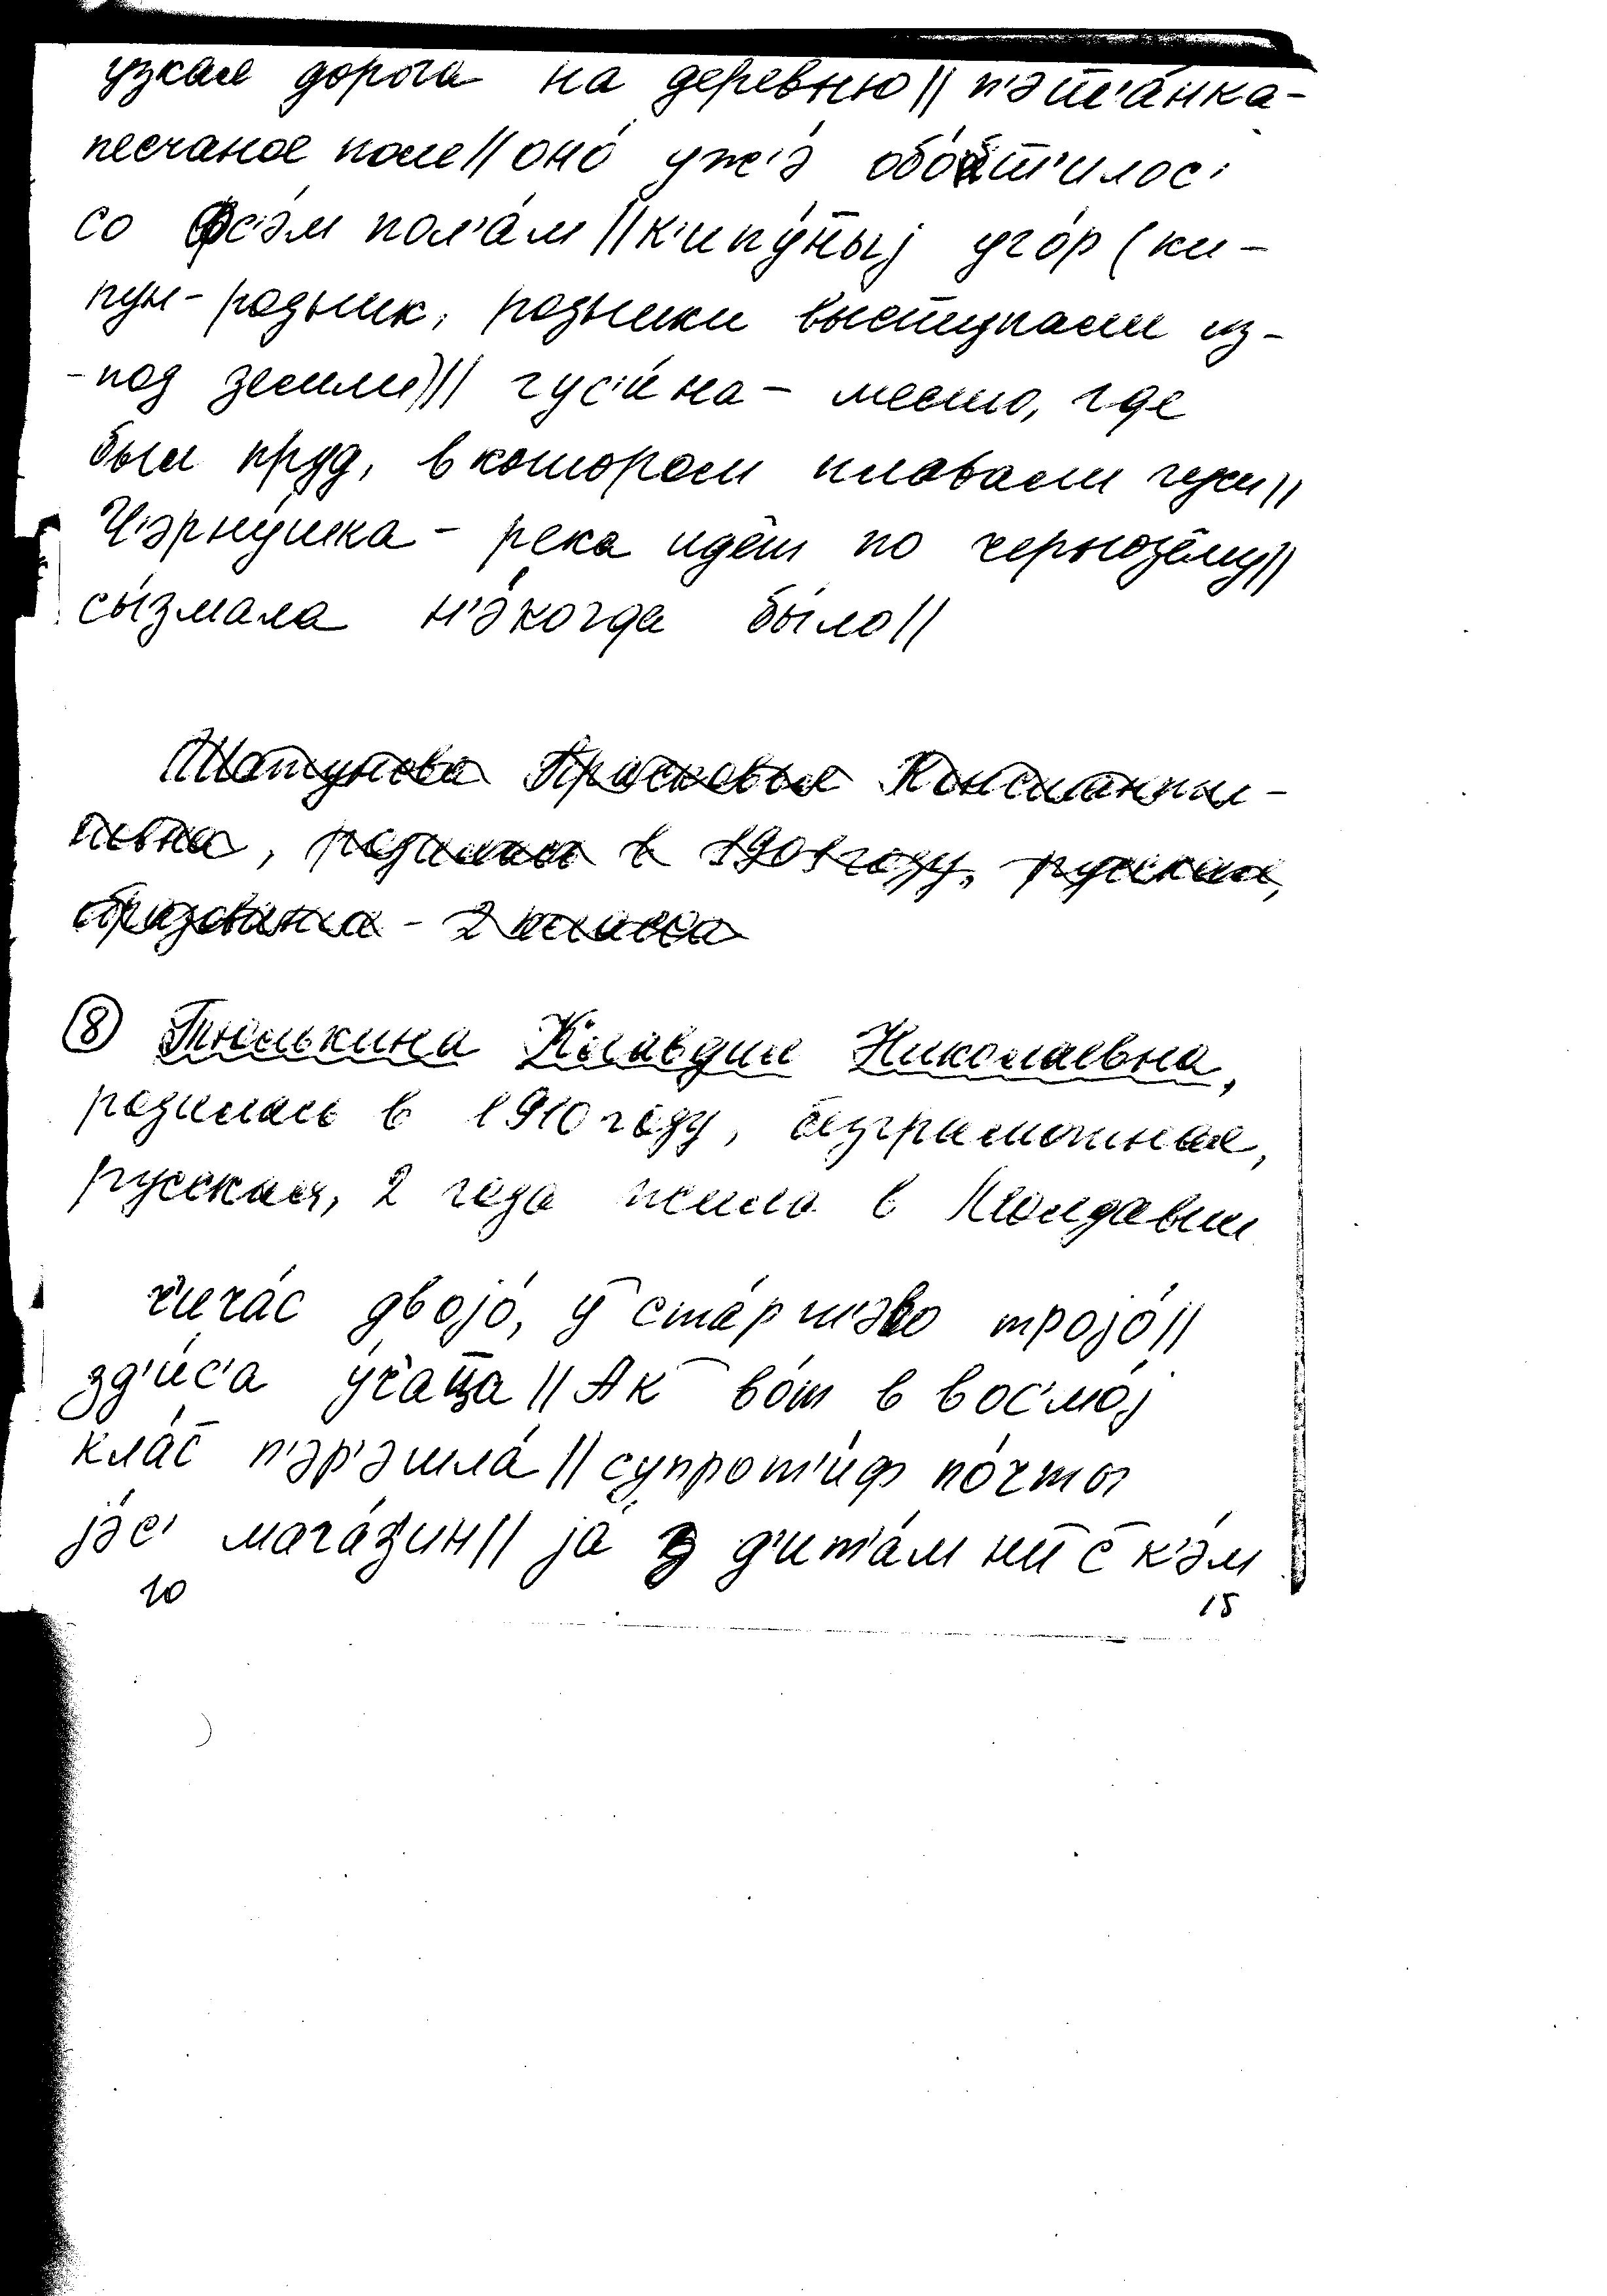 узкая дорога на деревню // п'эт'а́нка-
песчаное поле // оно́ уж'э́ обобшт'илос'
со фс'э́м пол'а́м // к'ипу́н̄ыj уго́р (ки-
пун - родник, родники выступали из-
-под земли) // гус'и́на - место, где
был пруд, в котором плавали гуси //
Ч'эрну́шка - река идёт по чернозёму //
сы́змала н'э́когда бы́ло //
Шатунова Прасковья Константи-
новна, родилась в 1901 году, русская,
образование - 2 класса
⑧ Тюлькина Клавдия Николаевна,
родилась в 1910 году, безграмотная,
русская, 2 года жила в Молдавии
чича́с двоjо́, у ста́рш'эво троjо́ //
зд'и́с'а у́чац̄а // Ак во́т в вос'мо́j
кла́с̄ п'эр'эшла́ // супрот'и́ф по́чты
jэ́с' мага́з'ин // jа́ з д'ит'а́м ни с к'э́м
10 15